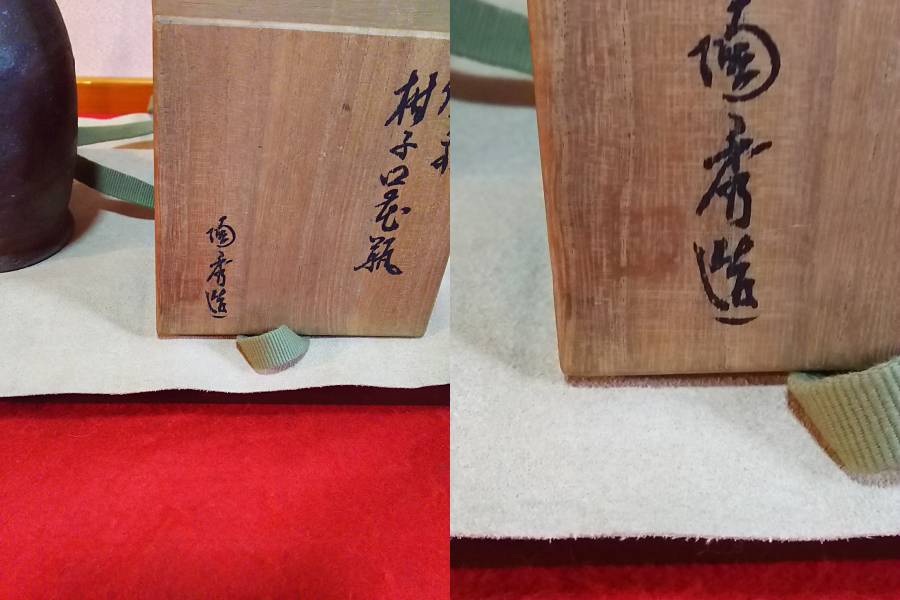 柑子口花瓶
陶秀造
陶秀造